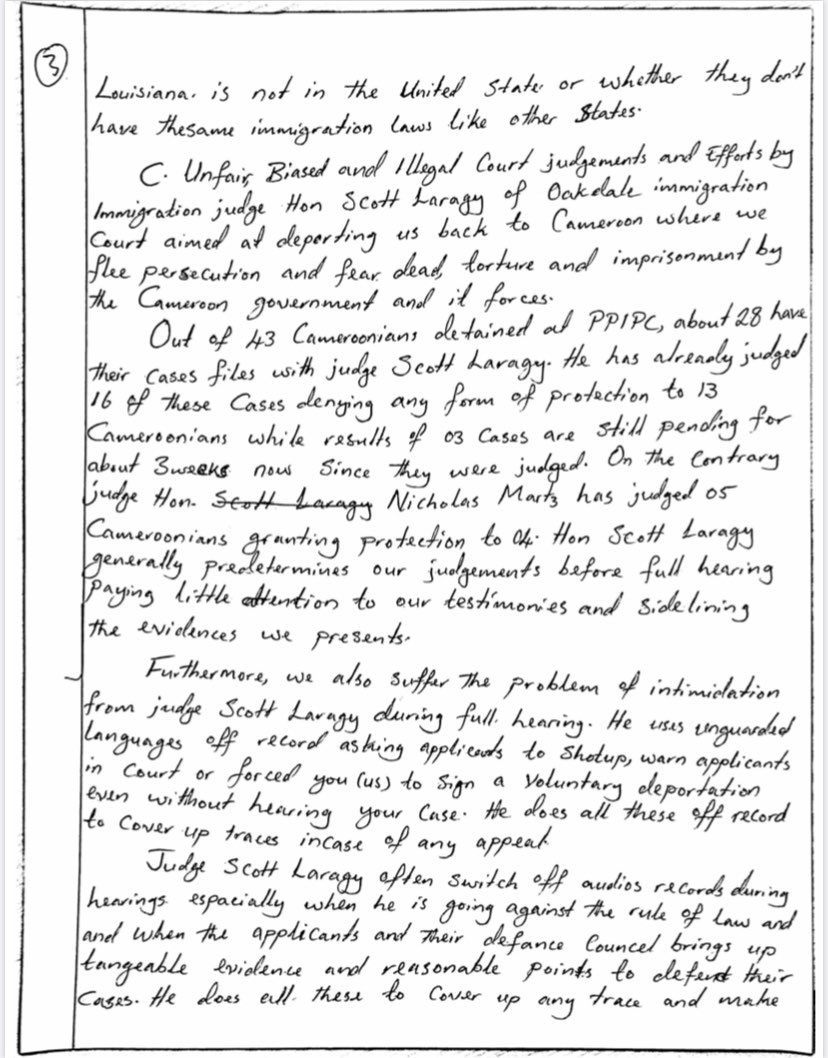 3
Louisiana. is not in the United State or whether they don't
have thesame immigration laws like other States.
C. Unfair, Biased and Illegal Court judgements and Efforts by
Immigration judge Hon Scott Laragy of Oakdale immigration
Court aimed at deporting us back to Cameroon where we
flee persecution and fear dead, torture and imprisonment by
the Cameroon government and it forces.
Out of 43 Cameroonians detained at PPIPC, about 28 have
their cases files with judge Scott Laragy. He has already judged
16 of these Cases denying any form of protection to 13
Cameroonians while results of 03 Cases are still pending for
about 3weeks now Since they were judged. On the Contrary
judge Hon. Scott Laragy Nicholas Martz has judged 05
Cameroonians granting protection to 04. Hon Scott Laragy
generally predetermines our judgements before full hearing
Paying little attention to our testimonies and Sidelining
the evidences we presents.
Furthermore, we also suffer the problem of intimidation
from judge Scott Laragy during full hearing. He uses unguarded
languages off record asking applicants to Shotup, warn applicants
in Court or forced you (us) to Sign a Voluntary deportation
even without hearing your Case. He does all these off record
to Cover up traces incase of any appeal.
Judge Scott Laragy often Switch off audios records during
hearings espacially when he is going against the rule of Law and
and when the applicants and their defance Councel brings up
tangeable evidence and reasonable points to defend their
Cases. He does all these to Cover up any trace and make